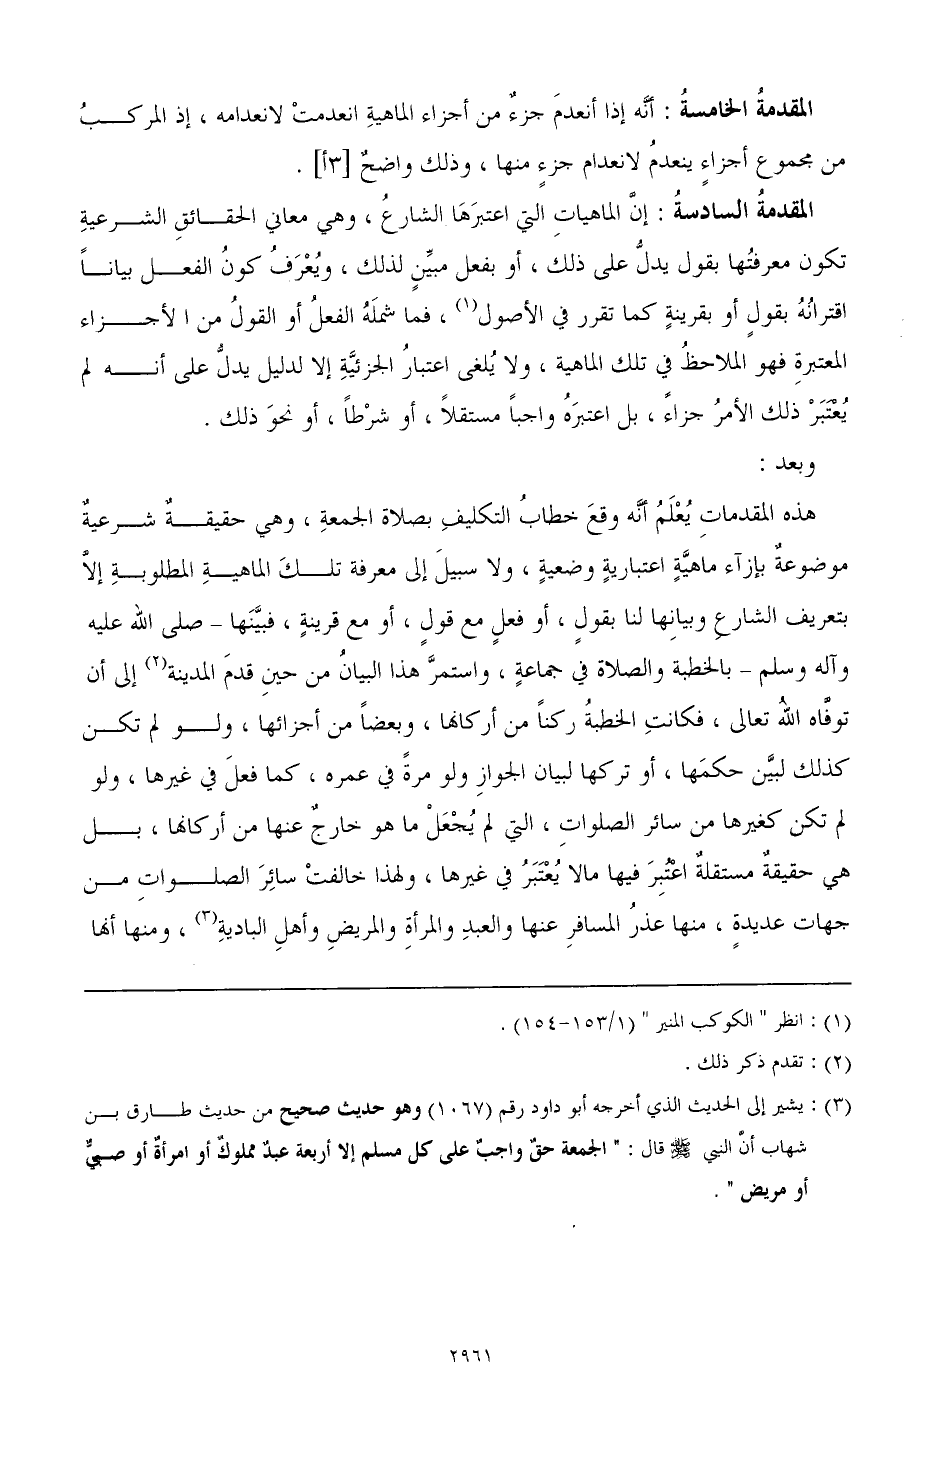 المقدمةُ الخامسةُ : أنَّه إذا أنعدمَ جزءٌ من أجزاء الماهيةِ انعدمتْ لانعدامه ، إذ المركبُ
من مجموع أجزاءٍ ينعدمُ لانعدام جزءٍ منها ، وذلك واضحٌ [٣أ] .
المقدمةُ السادسةُ : إنَّ الماهيات التي اعتبرَهَا الشارعُ ، وهي معاني الحقائقِ الشرعيةِ
تكون معرفتُها بقول يدلُّ على ذلك ، أو بفعل مبيِّنٍ لذلك ، ويُعْرَفُ كونُ الفعل بياناً
اقترانُهُ بقولٍ أو بقرينةٍ كما تقرر في الأصول(١) ، فما شملَهُ الفعلُ أو القولُ من ا لأجزاء
المعتبرةِ فهو الملاحظُ في تلك الماهية ، ولا يُلغى اعتبارُ الجزئيَّةِ إلا لدليل يدلُّ على أنه لم
يُعْتَبَرْ ذلك الأمرُ جزاءً ، بل اعتبرَهُ واجباً مستقلاً ، أو شرْطاً ، أو نحوَ ذلك .
وبعد :
هذه المقدماتِ يُعْلَمُ أنَّه وقعَ خطابُ التكليفِ بصلاة الجمعةِ ، وهي حقيقةٌ شرعيةٌ
موضوعةٌ بإزآء ماهيَّةٍ اعتباريةٍ وضعيةٍ ، ولا سبيلَ إلى معرفة تلكَ الماهيةِ المطلوبةِ إلاَّ
بتعريف الشارعِ وبيانِها لنا بقولٍ ، أو فعلٍ مع قولٍ ، أو مع قرينةٍ ، فبيَّنَها – صلى الله عليه
وآله وسلم – بالخطبة والصلاة في جماعةٍ ، واستمرَّ هذا البيانُ من حينِ قدمَ المدينة(٢) إلى أن
توفَّاه اللهُ تعالى ، فكانتِ الخطبةُ ركناً من أركانها ، وبعضاً من أجزائها ، ولو لم تكن
كذلك لبيَّن حكمَها ، أو تركها لبيان الجوازِ ولو مرةً في عمره ، كما فعلَ في غيرها ، ولو
لم تكن كغيرها من سائر الصلواتِ ، التي لم يُجْعَلْ ما هو خارجٌ عنها من أركانها ، بل
هي حقيقةٌ مستقلةٌ اعتُبرَ فيها مالا يُعْتَبَرُ في غيرها ، ولهذا خالفتْ سائرَ الصلواتِ من
جهات عديدةٍ ، منها عذرُ المسافرِ عنها والعبدِ والمرأةِ والمريضِ وأهلِ الباديةِ(٣) ، ومنها أنها
(١) : انظر " الكوكب المنير " (١/١٥٣-١٥٤) .
(٢) : تقدم ذكر ذلك .
(٣) : يشير إلى الحديث الذي أخرجه أبو داود رقم (١٠٦٧) وهو حديث صحيح من حديث طارق بن
شهاب أنَّ النبي ﷺ قال : " الجمعة حقٌ واجبٌ على كل مسلم إلا أربعة عبدٌ مملوكٌ أو امرأةٌ أو صبيٌّ
أو مريض " .
٢٩٦١